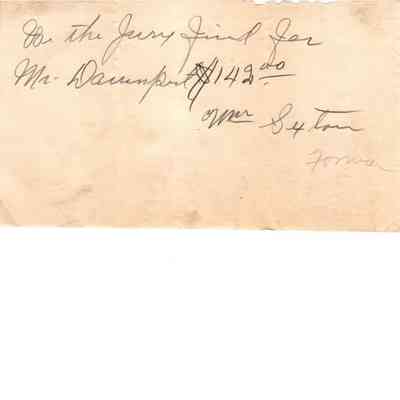 We the Jury find for
Mr. Davenport $142.00
Wm Sexton
Forman